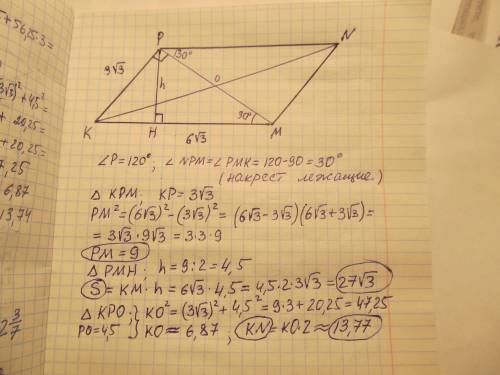 5+56,1533=
3√3)²+4,5²
+ 20,25=
+ 20,25=
7,25
6,87
13,74
2 3/7
P
N
130°
9√3
h
O
30°
K
H
M
6√3
∠P=120°; ∠NPM=∠PMK=120-90=30°
(накрест лежащие.)
△ KPM: KP=3√3
PM²=(6√3)²-(3√3)²=(6√3-3√3)(6√3+3√3)=
=3√3·9√3=3·3·9
PM=9
△PMH; h=9:2=4,5
S=KM·h=6√3·4,5=4,5·2·3√3=27√3
△KPO: } KO²=(3√3)²+4,5²=9·3+20,25=47,25
PO=4,5 } KO≈6,87; KN=KO·2≈13,77